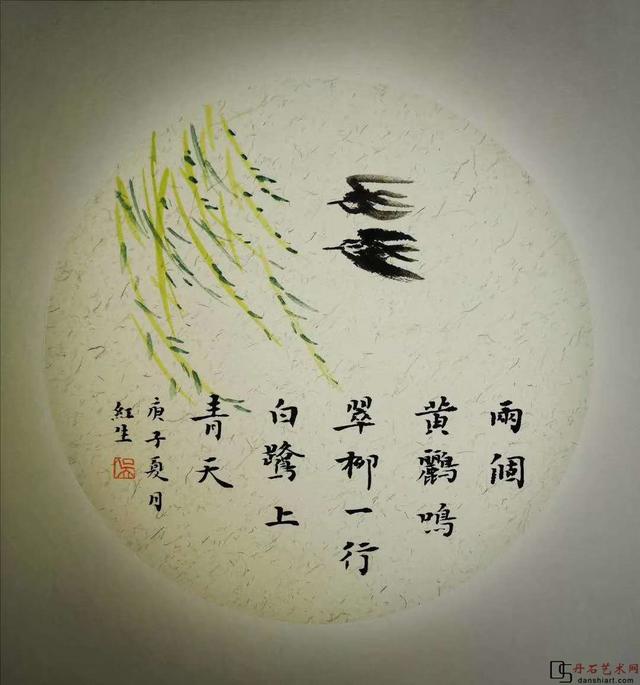 兩個
黄鸝鳴
翠柳一行
白鷺上
青天
庚子夏月
紅生
DS
丹石艺术网
danshiart.com